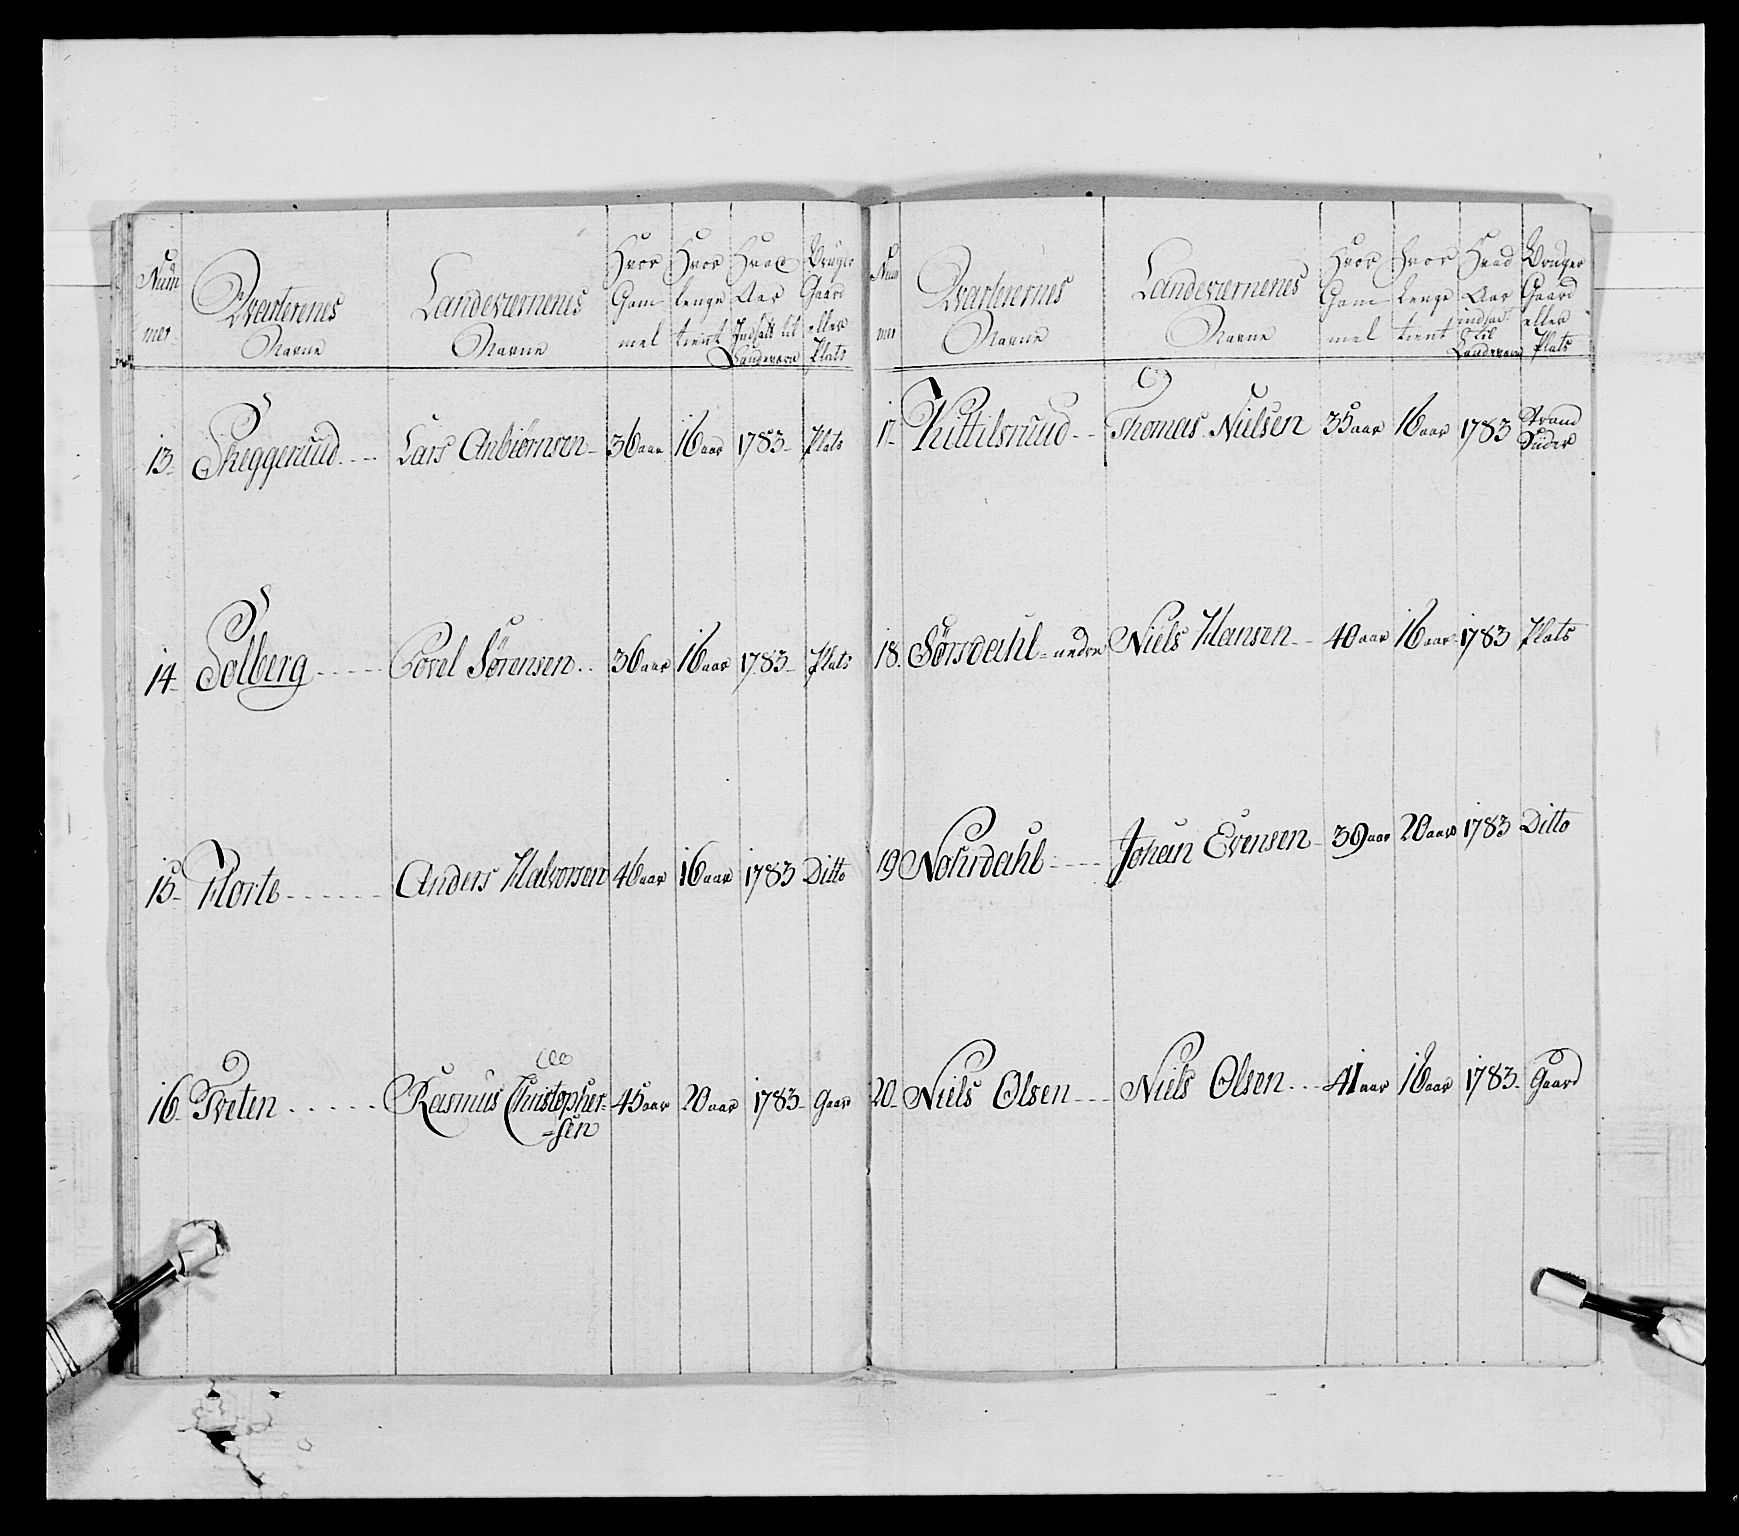 Num
mer
Qvarterenes
Navne
Landeværnenes
Navne
Hvor
Gam
mel
Hvor
lenge
tient
Hvad
Aar
Indsatt til
Landeværn
Bruger
Gaard
eller
Plats
13- Skeggerud.... Lars Anbiørnsen- 36 aar 16 aar 1783- Plats
14- Solberg..... Povel Sørensen.. 36 aar 16 aar 1783- Plats
15- Horte...... Anders Halvorsen 46 aar 16 aar 1783 Ditto
16- Tveten..... Rasmus Christopher=
=sen 45 aar 20 aar 1783- Gaar
Num
mer
Qvarterernes
Navne
Landeværnenes
Navne
Hvor
Gam
mel
Hvor
lenge
tient
Hvad
Aar
indsat
til
Landeværn
Bruger
Gaard
eller
Plats
17- Kittilsruud.. Thomas Nielsen 35 aar 16 aar 1783 Strand
Sider
18. Sørsdahl=nedre Niels Hansen.. 40 aar 16 aar 1783 Plats
19 Nohrdahl..... Johan Evensen- 39 aar 20 aar 1783 Ditto
20- Niels Olsen... Niels Olsen... 41 aar 16 aar 1783- Gaard